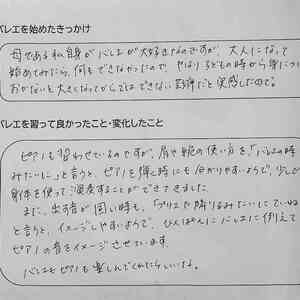 バレエを始めたきっかけ
母である私自身がバレエが大好きなのですが、大人になって
始めてみたら、何もできなかったので、やはり子どもの時から身につ
おかないと大きくなってからではできない芸術だと実感したので。
バレエを習って良かったこと・変化したこと
ピアノも習わせているのですが、肩や腕の使い方を、「バレエの時
みたいに」と言うと、ピアノを弾く時にも分かりやすいようで、少し
身体を使って演奏することができてきました。
また、出す音が固い時も、「プリエや降りるみたいにしてね
と言うと、イメージしやすいようで、ひんぱんにバレエに例えて
ピアノの音をイメージさせています。
バレエもピアノも楽しんでくれたらいいな。